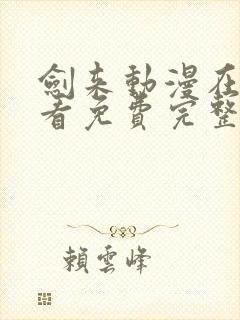 劍來動漫在
看免費完整
賴雲峰